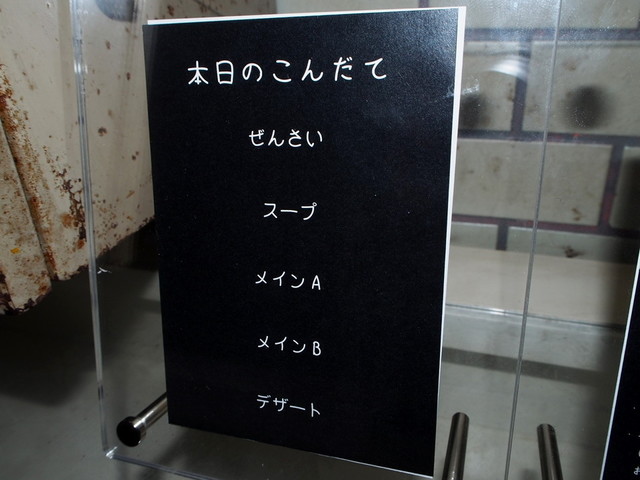 本日のこんだて
ぜんさい
スープ
メインA
メインB
デザート